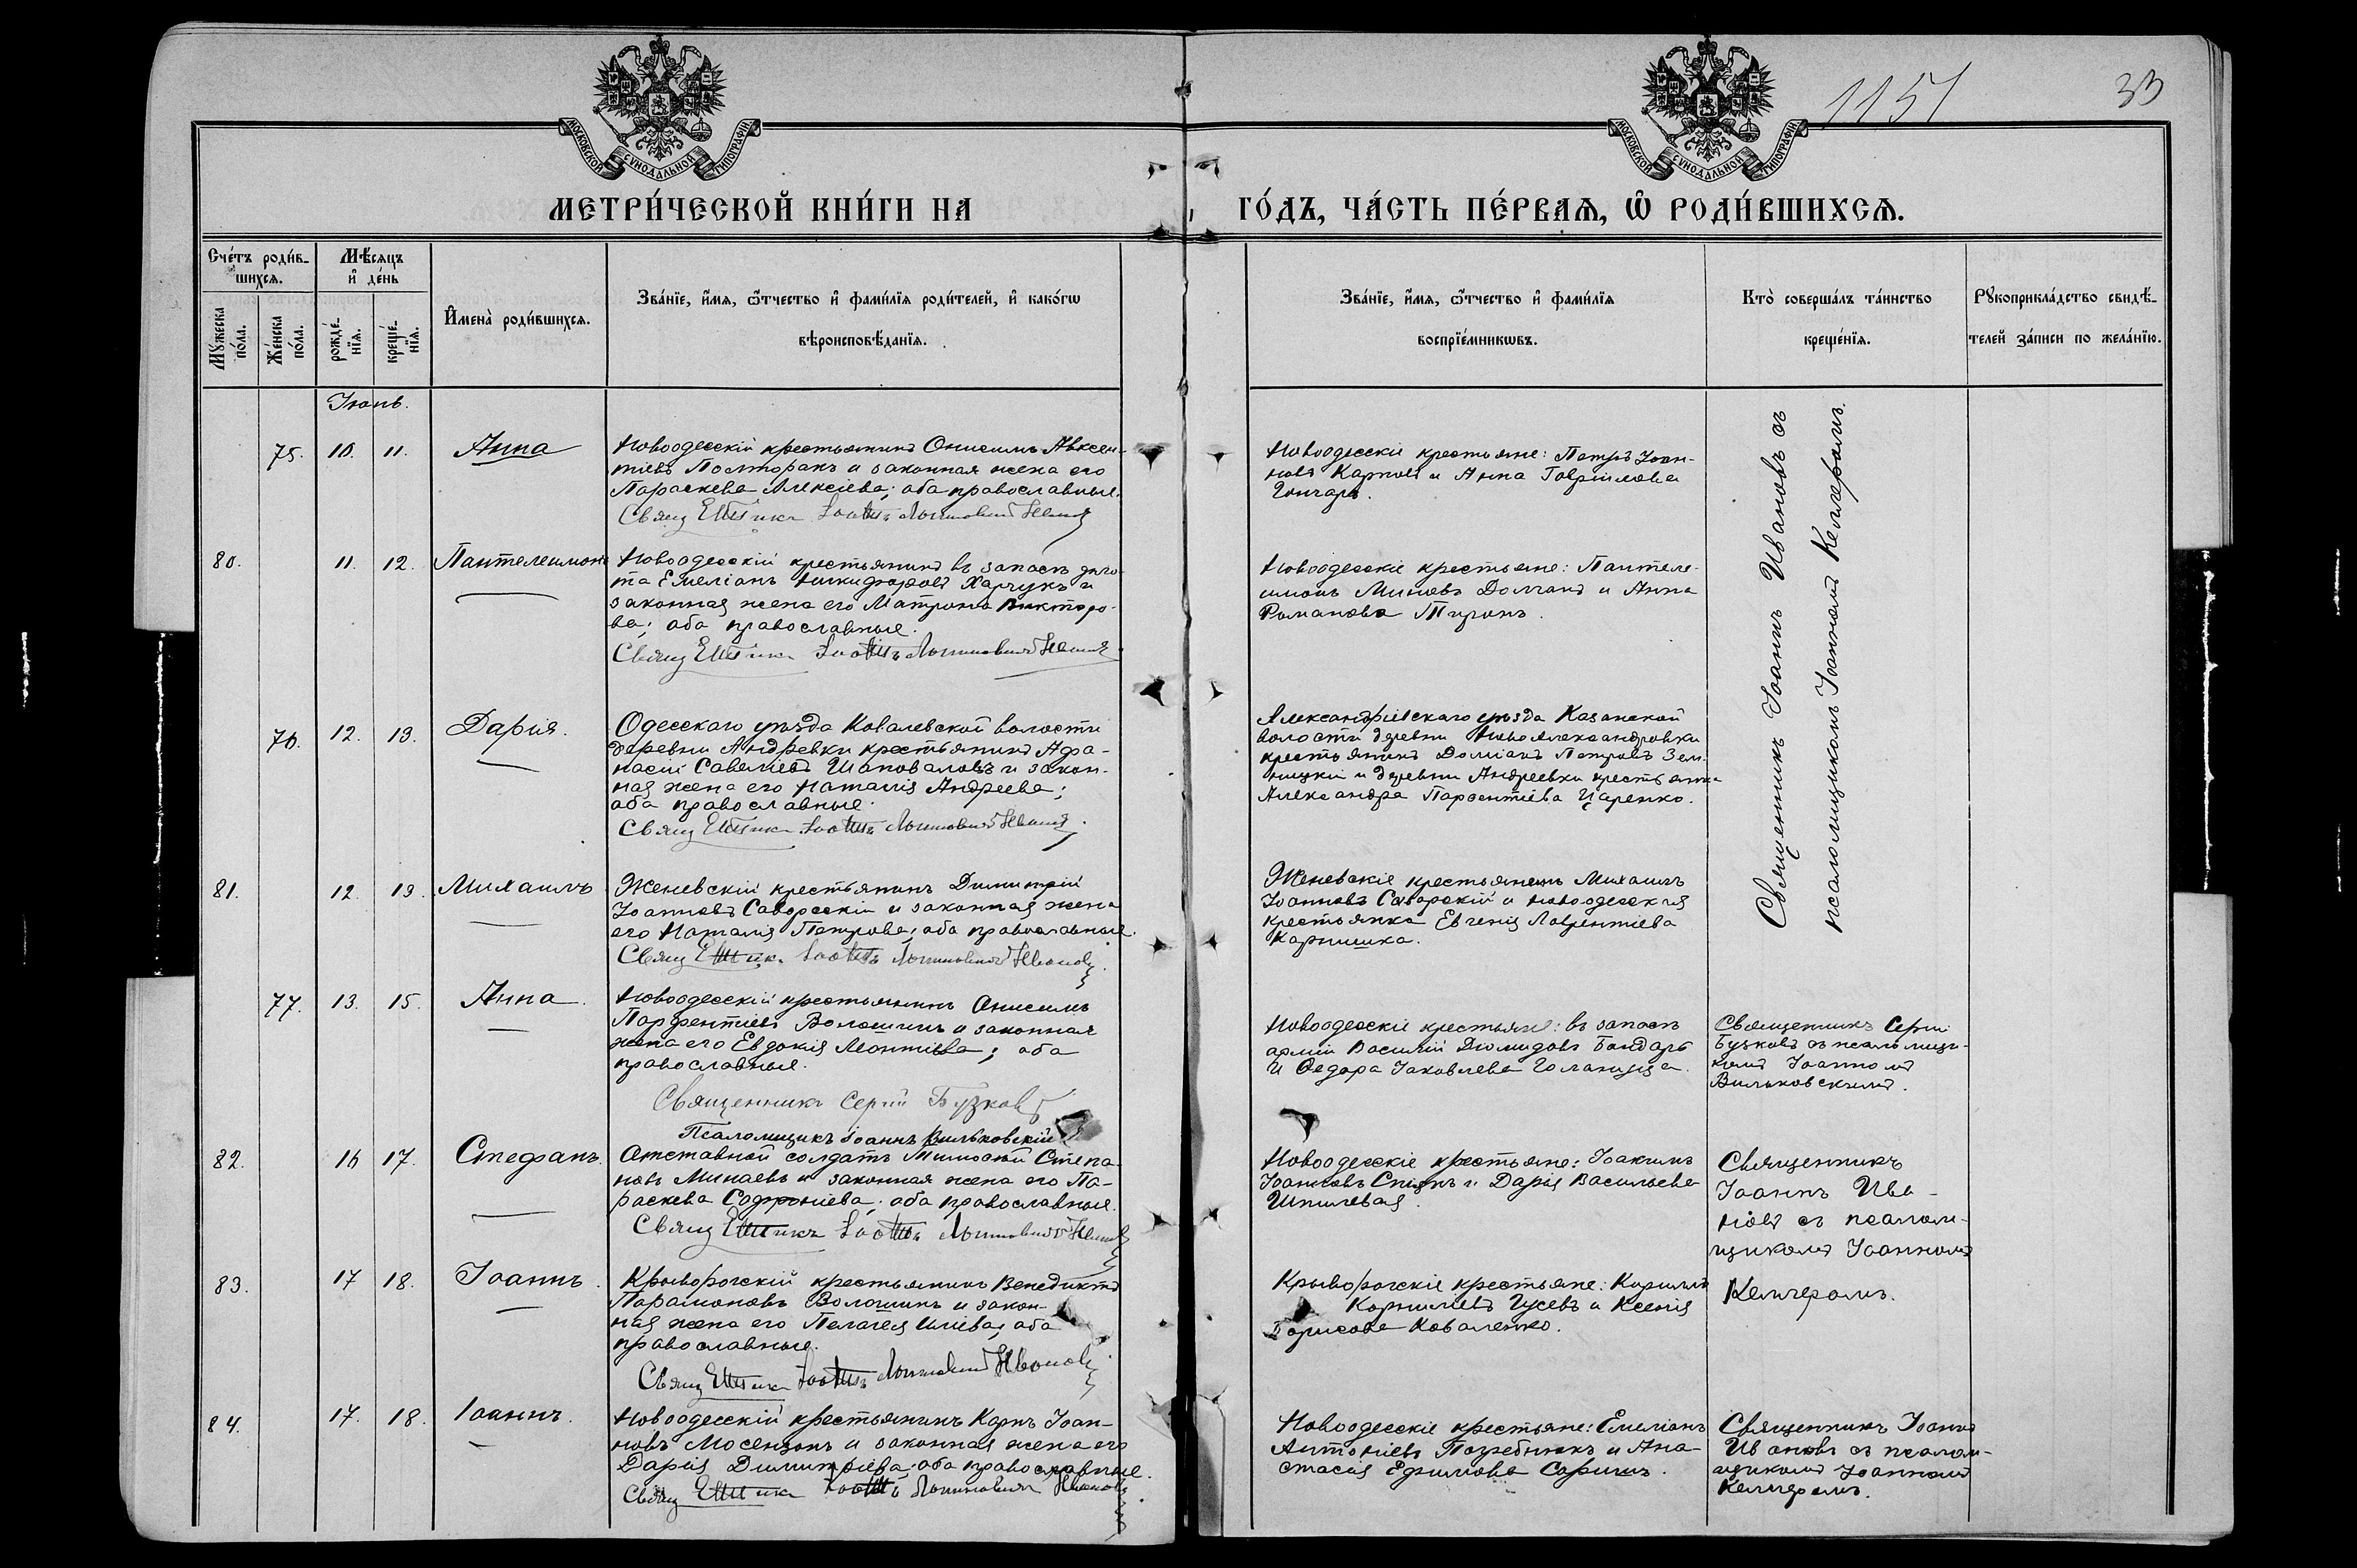 1151
33
МОСКОВСКОЙ СѴНОДАЛЬНОЙ ТИПОГРАФІИ
МОСКОВСКОЙ СѴНОДАЛЬНОЙ ТИПОГРАФІИ
МЕТРИ́ЧЕСКОЙ КНИ́ГИ НА
ГО́ДЪ, ЧА́СТЬ ПЕ́РВАѦ, Ѡ҆ РОДИ́ВШИХСѦ.
Сче́тъ роди́в-
шихсѧ.
Мꙋ́жеска по́ла.
Же́нска по́ла.
Мѣ́сѧцъ
и҆ де́нь
рожде́-
нїѧ.
креще́-
нїѧ.
И҆мена̀ роди́вшихсѧ.
Зва́нїе, и҆́мѧ, ѻ҆́тчество и҆ фами́лїѧ роди́телей, и҆ како́гѡ
вѣроисповѣ́данїѧ.
Зва́нїе, и҆́мѧ, ѻ҆́тчество и҆ фами́лїѧ
воспрїе́мникѡвъ.
Кто̀ соверша́лъ та́инство
креще́нїѧ.
Рꙋкоприкла́дство свидѣ́-
телей за́писи по жела́нїю.
Іюнь.
75. 10. 11. Анна
Новоодесскій крестьянинъ Онисимъ Авксен-
тіевъ Полторакъ и законная жена его
Параскева Алексіева; оба православные.
Новоодесскіе крестьяне: Петръ Іоан-
новъ Карповъ и Анна Гавріилова
Гончаръ.
80. 11. 12. Пантелеимонъ
Новоодесскій крестьянинъ въ запасѣ
Емеліанъ Никифоровъ Харчукъ и
законная жена его Матрона Викторо-
ва; оба православные.
Новоодесскіе крестьяне: Пантеле-
имонъ Миновъ Долганъ и Анна
Романова Тиронъ.
76. 12. 13. Дарія.
Одесскаго уѣзда Ковалевской волости
деревни Андревки крестьянинъ Афа-
насій Савеліевъ Шаповаловъ и закон-
ная жена его Наталія Андреева;
оба православные.
Александрійскаго уѣзда Казанской
волости деревни Новоалександровки
крестьянинъ Доміанъ Петровъ Зем-
ницкій и деревни Андреевки крестьянка
Александра Парфентіева Царенко.
81. 12. 13. Михаилъ
Женевскій крестьянинъ Димитрій
Іоанновъ Саворскій и законная жена
его Наталія Петрова; оба православные.
Женевскіе крестьянинъ Михаилъ
Іоанновъ Саворскій и новоодесская
крестьянка Евгенія Лаврентіева
Карпишка.
Священникъ Іоаннъ Ивановъ съ
псаломщикомъ Іоанномъ Келлеромъ.
77. 13. 15. Анна.
Новоодесскій крестьянинъ Онисимъ
Парфентіевъ Волошинъ и законная
жена его Евдокія Леонтіева; оба
православные.
Священникъ Сергій Бузковъ
Псаломщикъ Іоаннъ Вильковскій
Новоодесскіе крестьяне: въ запасѣ
арміи Василій Діомидовъ Бондарь
и Ѳедора Іаковлева Голаница.
Священникъ Сергій
Бузковъ съ псаломщи-
комъ Іоанномъ
Вильковскимъ.
82. 16 17. Стефанъ.
Отставной солдатъ Тимофей Степа-
новъ Минаевъ и законная жена его Па-
раскева Софроніева; оба православные.
Новоодесскіе крестьяне: Іоакимъ
Іоанновъ и Дарія Васильева
Шпилевая.
Священникъ
Іоаннъ Ива-
новъ съ псалом-
щикомъ Іоанномъ
Келлеромъ.
83. 17 18. Іоаннъ.
Криворогскій крестьянинъ Венедиктъ
Парамоновъ Волошинъ и закон-
ная жена его Пелагея Иліева; оба
православные.
Криворогскіе крестьяне: Кириллъ
Корниліевъ Гусевъ и Ксенія
Борисова Коваленко.
84. 17. 18. Іоаннъ.
Новоодесскій крестьянинъ Карпъ Іоан-
новъ Мосензонъ и законная жена его
Дарія Димитріева; оба православные.
Новоодесскіе крестьяне: Емеліанъ
Антоніевъ Погребнякъ и Ана-
стасія Ефимова Саричъ.
Священникъ Іоаннъ
Ивановъ съ псалом-
щикомъ Іоанномъ
Келлеромъ.